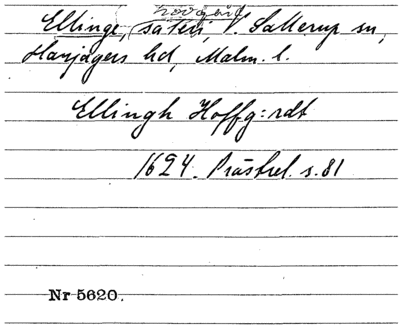 huvudgård
Ellinge, säteri, V. Sallerup sn,
Harjagers hd, Malm. l.
Ellingh Hoffg:rdt
1624. Prästrel. s. 81
Nr 5620.